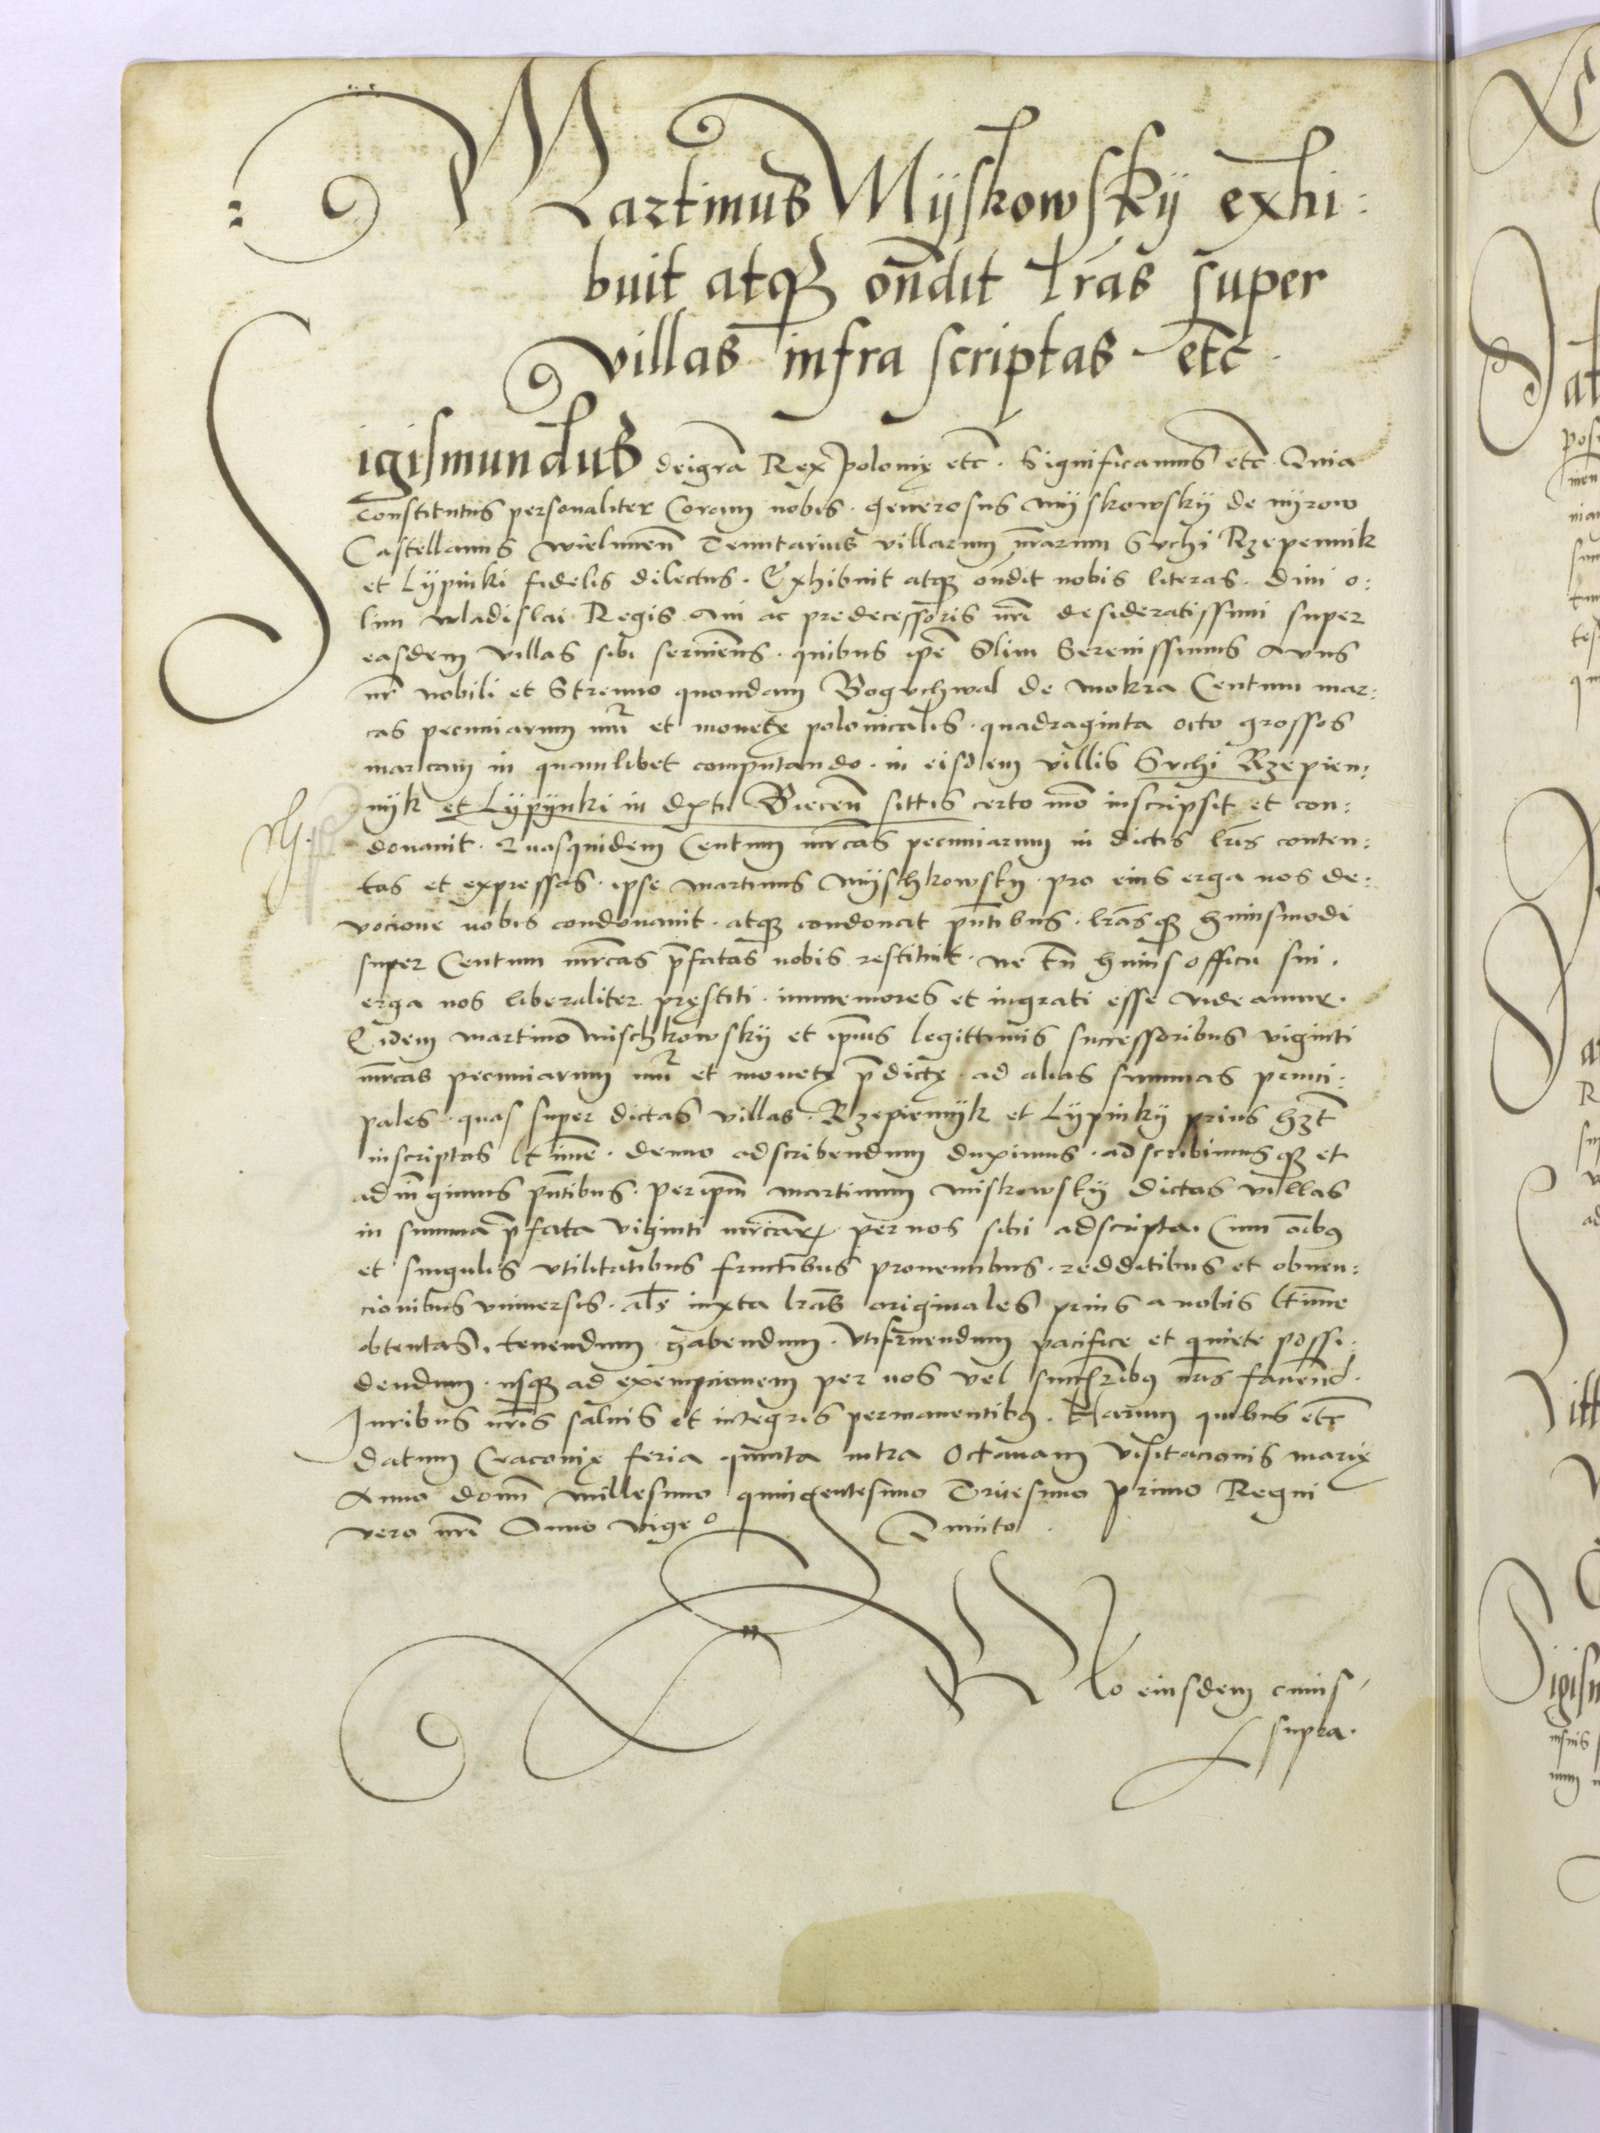 Martinus Mÿskowskÿ exhi:
buit atqꝫ on̄dit lr̄as super
villas infra scriptas etc̄.
Sigismundus dei gr̄a Rex Polonię etc̄. Significamus etc̄. Quia
Constitutus personaliter Coram nobis. Generosus Mÿskowskÿ de Mÿrow
Castellanus Wielunen̄ Tenutarius villarum nr̄arum Suchi Rzepennik
et Lÿpinki fidelis dilectus. Exhibuit atqꝫ on̄dit nobis literas. Diui o:
lim Wladislai Regis Aui ac predecessoris nr̄i desideratissimi super
easdem villas sibi seruien̄s. quibus ip̄e Olim Serenissimus Auus
nr̄ nobili et Strenuo quondam Boguchwal de Mokra Centum mar:
cas pecuniarum nūi et monetę polonicalis. quadraginta octo grossos
marcam in quamlibet computando. in eisdem villis Suchi Rzepien:
nÿk et Lÿpÿnki in dr̄tu Biecen̄ sittis certo mō inscripsit et con:
donauit. Quasquidem Centum mr̄cas pecuniarum in dictis lr̄is conten:
tas et expressas. ipse Martinus Mÿschkowskÿ. pro eius erga nos de:
vocione nobis condonauit. atqꝫ condonat pn̄tibus. lr̄asqꝫ huiusmodi
super Centum mr̄cas p̄fatas nobis restituit. ne tn̄ huius officii sui.
erga nos liberaliter pręstiti. immemores et ingrati esse videamur.
Eidem Martino Mischkowskÿ et ip̄ius legittimis successoribus viginti
mr̄cas pecuniarum nūi et monetę p̄dictę. ad alias summas princi:
pales. quas super dictas villas. Rzepiennÿk et Lÿpinkÿ prius hꝫt
inscriptas lt̄ime. denuo adscribendum duximus. adscribimusqꝫ et
pn̄tibus. per ip̄m Martinum Miskowskÿ dictas villas
in summa p̄fata viginti mr̄car̄ per nos sibi adscripta. Cum oībꝰ
et singulis vtilitatibus fructibus prouentibus. redditibus et obuen:
cionibus vniuersis. al̄s iuxta lr̄as originales prius a nobis lt̄ime
obtentas. tenendum. habendum. vtifruendum pacifice et quiete possi:
dendum. usqꝫ ad exempcionem per nos vel succs̄ribꝰ nr̄is faciend̄.
Juribus nr̄is saluis et integris permanentibꝰ. Harum quibus etc̄
datum Cracouię feria quinta intra Octauam Visitacionis Marię
Anno domī Millesimo quingentesimo Tricesimo primo Regni
vero nr̄i Anno vigeᵒ Quinto.
Rlo eiusdem cuius
supra.